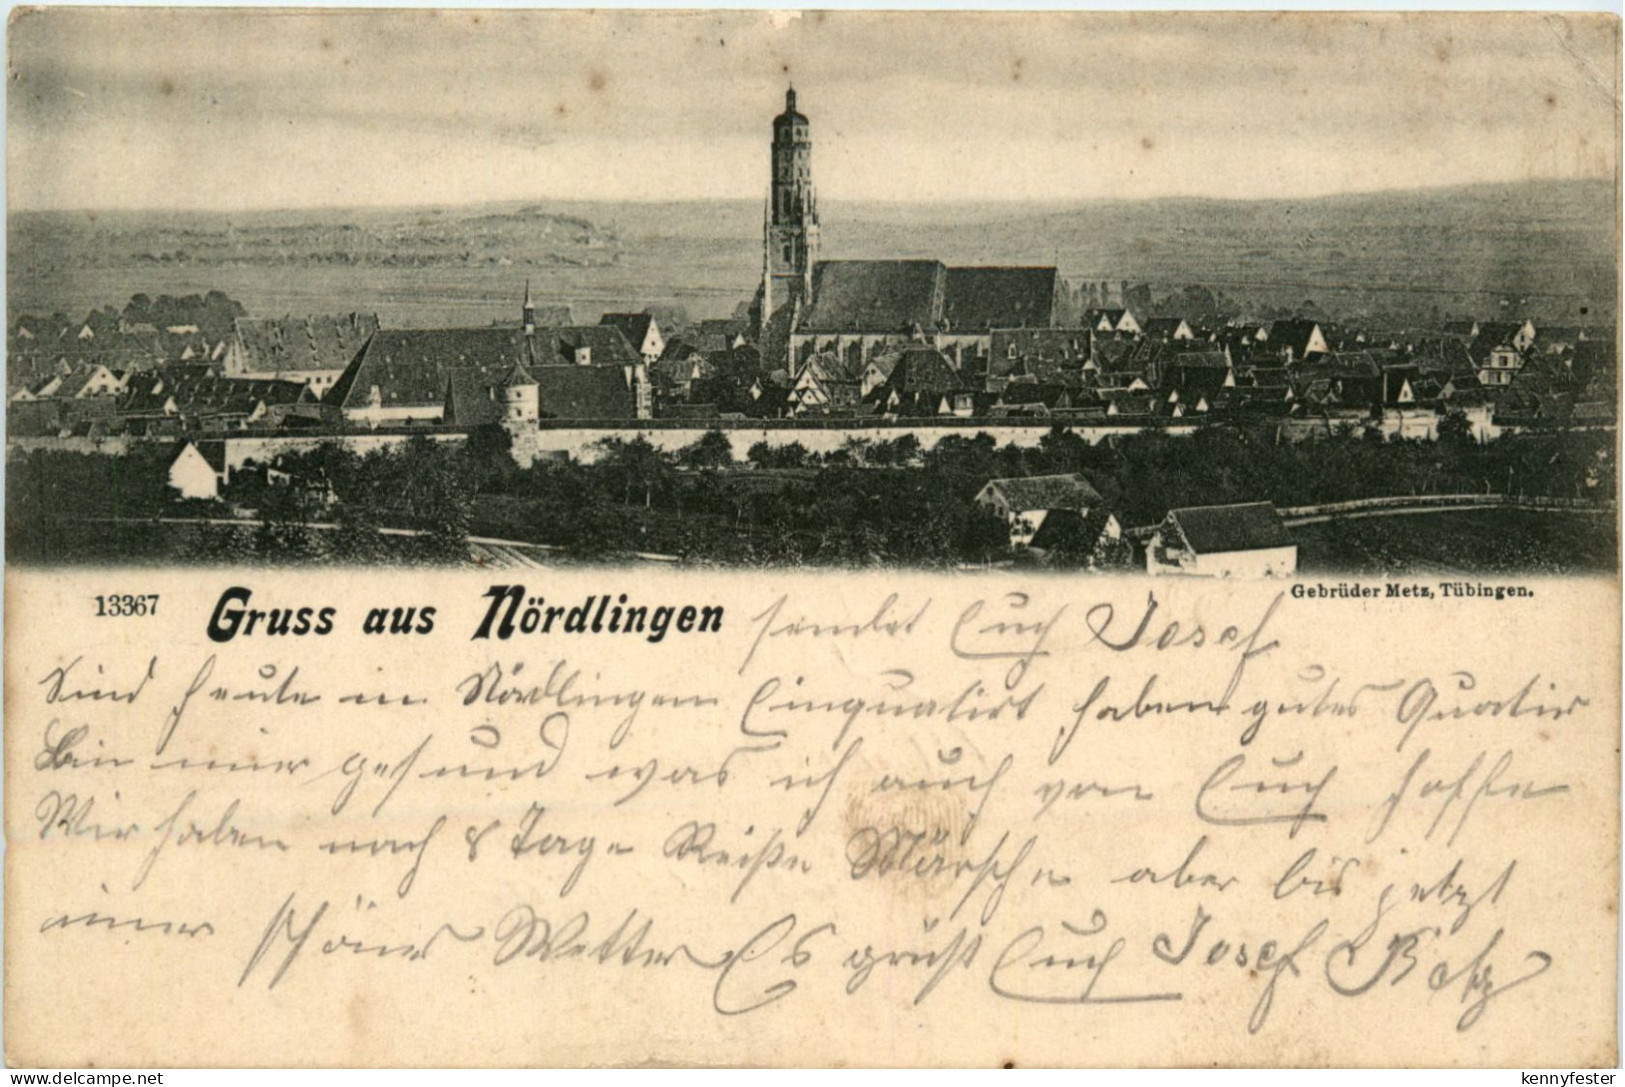 13367 Gruss aus Nördlingen sendet Euch Josef
Gebrüder Metz, Tübingen.
Sind heute in Nördlingen Einquatirt haben gutes Quatir
Bin imer gesund was ich auch von Euch hoffe
Wir haben noch 8 Tage Reiße Märsche aber bis jetzt
imer schönes Wetter Es grüßt Euch Josef Betz
www.delcampe.net
kennyfester